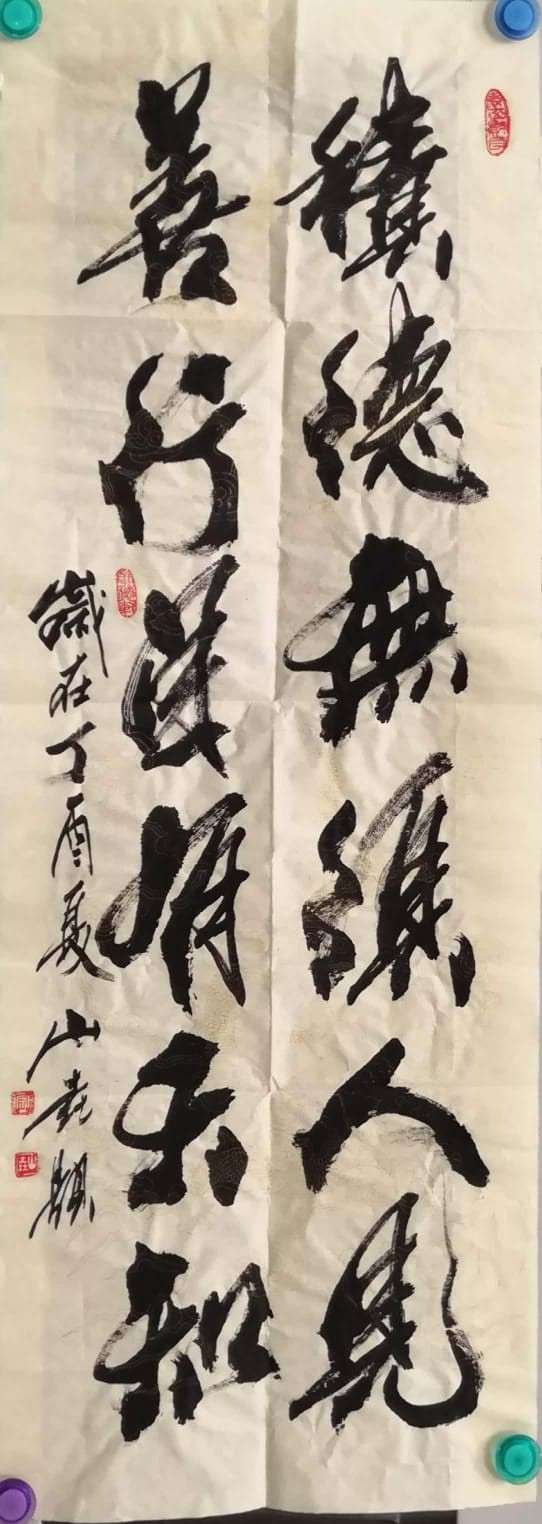 積德無須人見
善行自有天知
歲在丁酉夏 山題